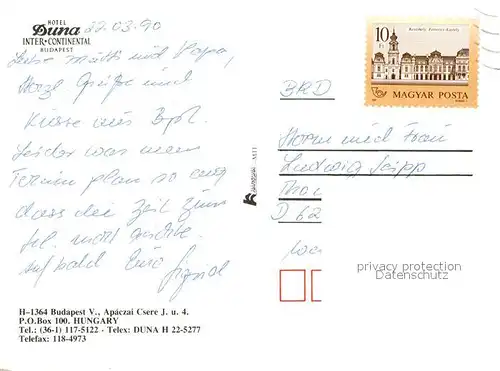 HOTEL
Duna
INTER-CONTINENTAL
BUDAPEST
22.03.90
Liebe Mutti und Papa,
Herzl Grüße und
Küsse aus Bpl.
Leider war mein
Terminplan so eng
dass die Zeit zum
Tel. nicht reichte.
Auf bald Eure
H-1364 Budapest V., Apáczai Csere J. u. 4.
P.O.Box 100. HUNGARY
Tel.: (36-1) 117-5122 - Telex: DUNA H 22-5277
Telefax: 118-4973
10 Ft
MAGYAR POSTA
BRD
Herrn und Frau
Ludwig Seipp
D 62
privacy protection
Datenschutz